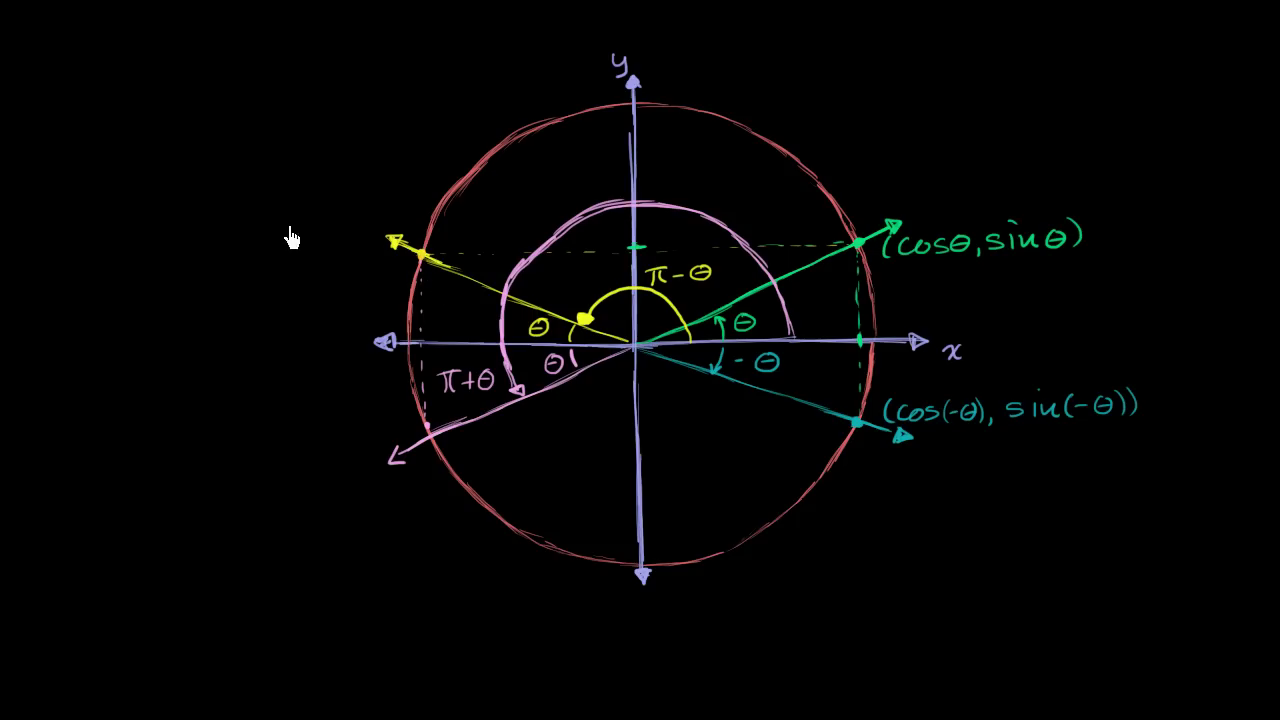 y
(cosθ, sinθ)
π-θ
θ
θ
x
θ
-θ
π+θ
(cos(-θ), sin(-θ))